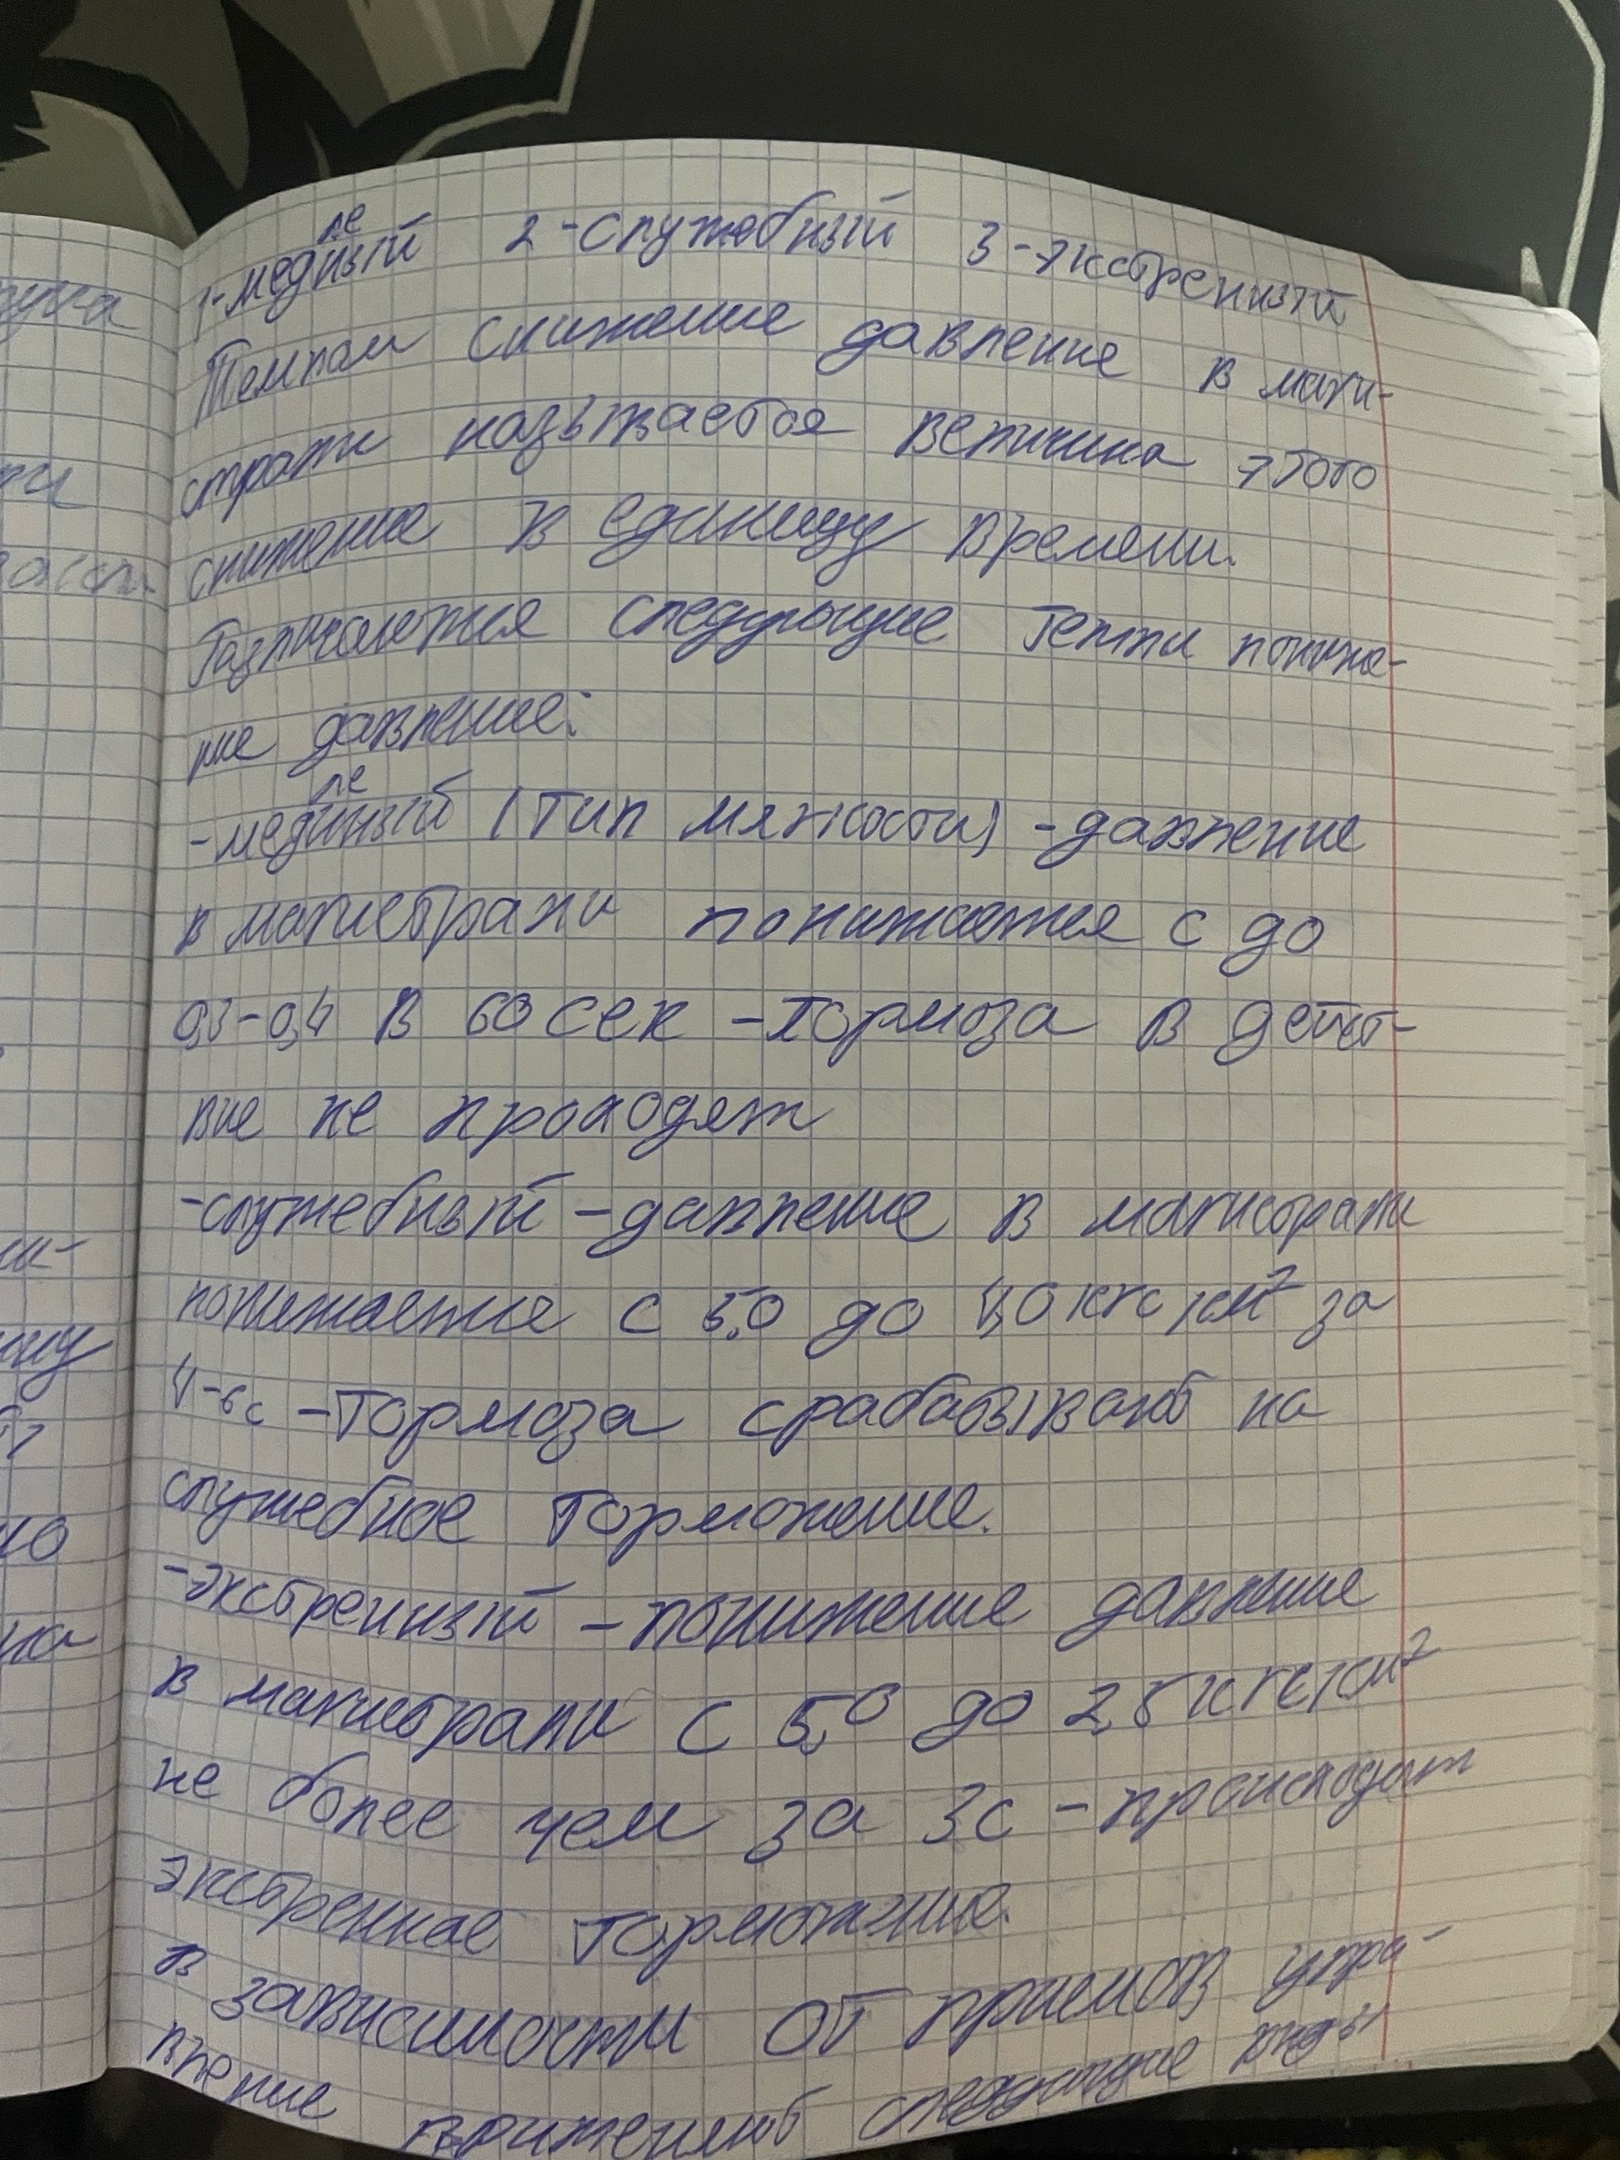 1-медленый 2-служебный 3-экстренный
Темпом снижение давление в маги-
страли называется величина этого
снижение в единицу времени.
Различаются следующие темпы пониже-
ние давление:
-медленый (тип мягкости) -давление
в магистрали понижается с до
0,3-0,4 в 60 сек -тормоза в дейст-
вие не проходят
-служебный -давление в магистрали
понижается с 5,0 до 4,0 кгс/см² за
4-6с -тормоза срабатывают на
служебное торможение.
-экстренный -понижение давление
в магистрали с 5,0 до 2,5 кгс/см²
не более чем за 3с -происходит
экстренное торможение.
в зависимости от приемов упра-
вление применяют следующие виды